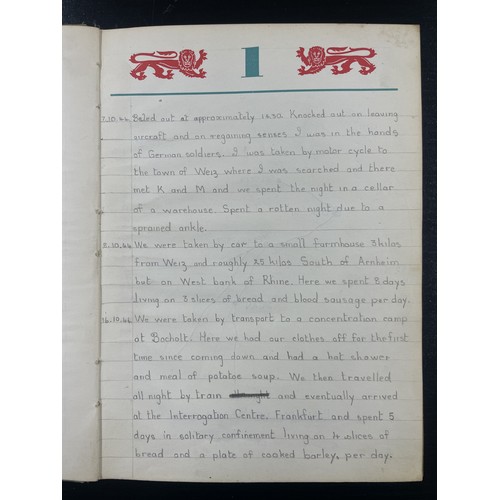 1
7.10.44. Baled out at approximately 1250 Knocked out on leaving
aircraft and on regaining senses I was in the hands
of German soldiers. I was taken by motor cycle to
the town of Weiz where I was searched and there
met K and M and we spent the night in a cellar
of a warehouse. Spent a rotten night due to a
sprained ankle.
8.10.44 We were taken by car to a small farmhouse 3 kilos
from Weiz and roughly 25 kilos South of Arnheim
but on West bank of Rhine. Here we spent 8 days
living on 3 slices of bread and blood sausage per day.
16.10.44 We were taken by transport to a concentration camp
at Bocholt. Here we had our clothes off for the first
time since coming down and had a hot shower
and meal of potatoe soup. We then travelled
all night by train and eventually arrived
at the Interrogation Centre, Frankfurt and spent 5
days in solitary confinement living on 4 slices of
bread and a plate of cooked barley, per day.